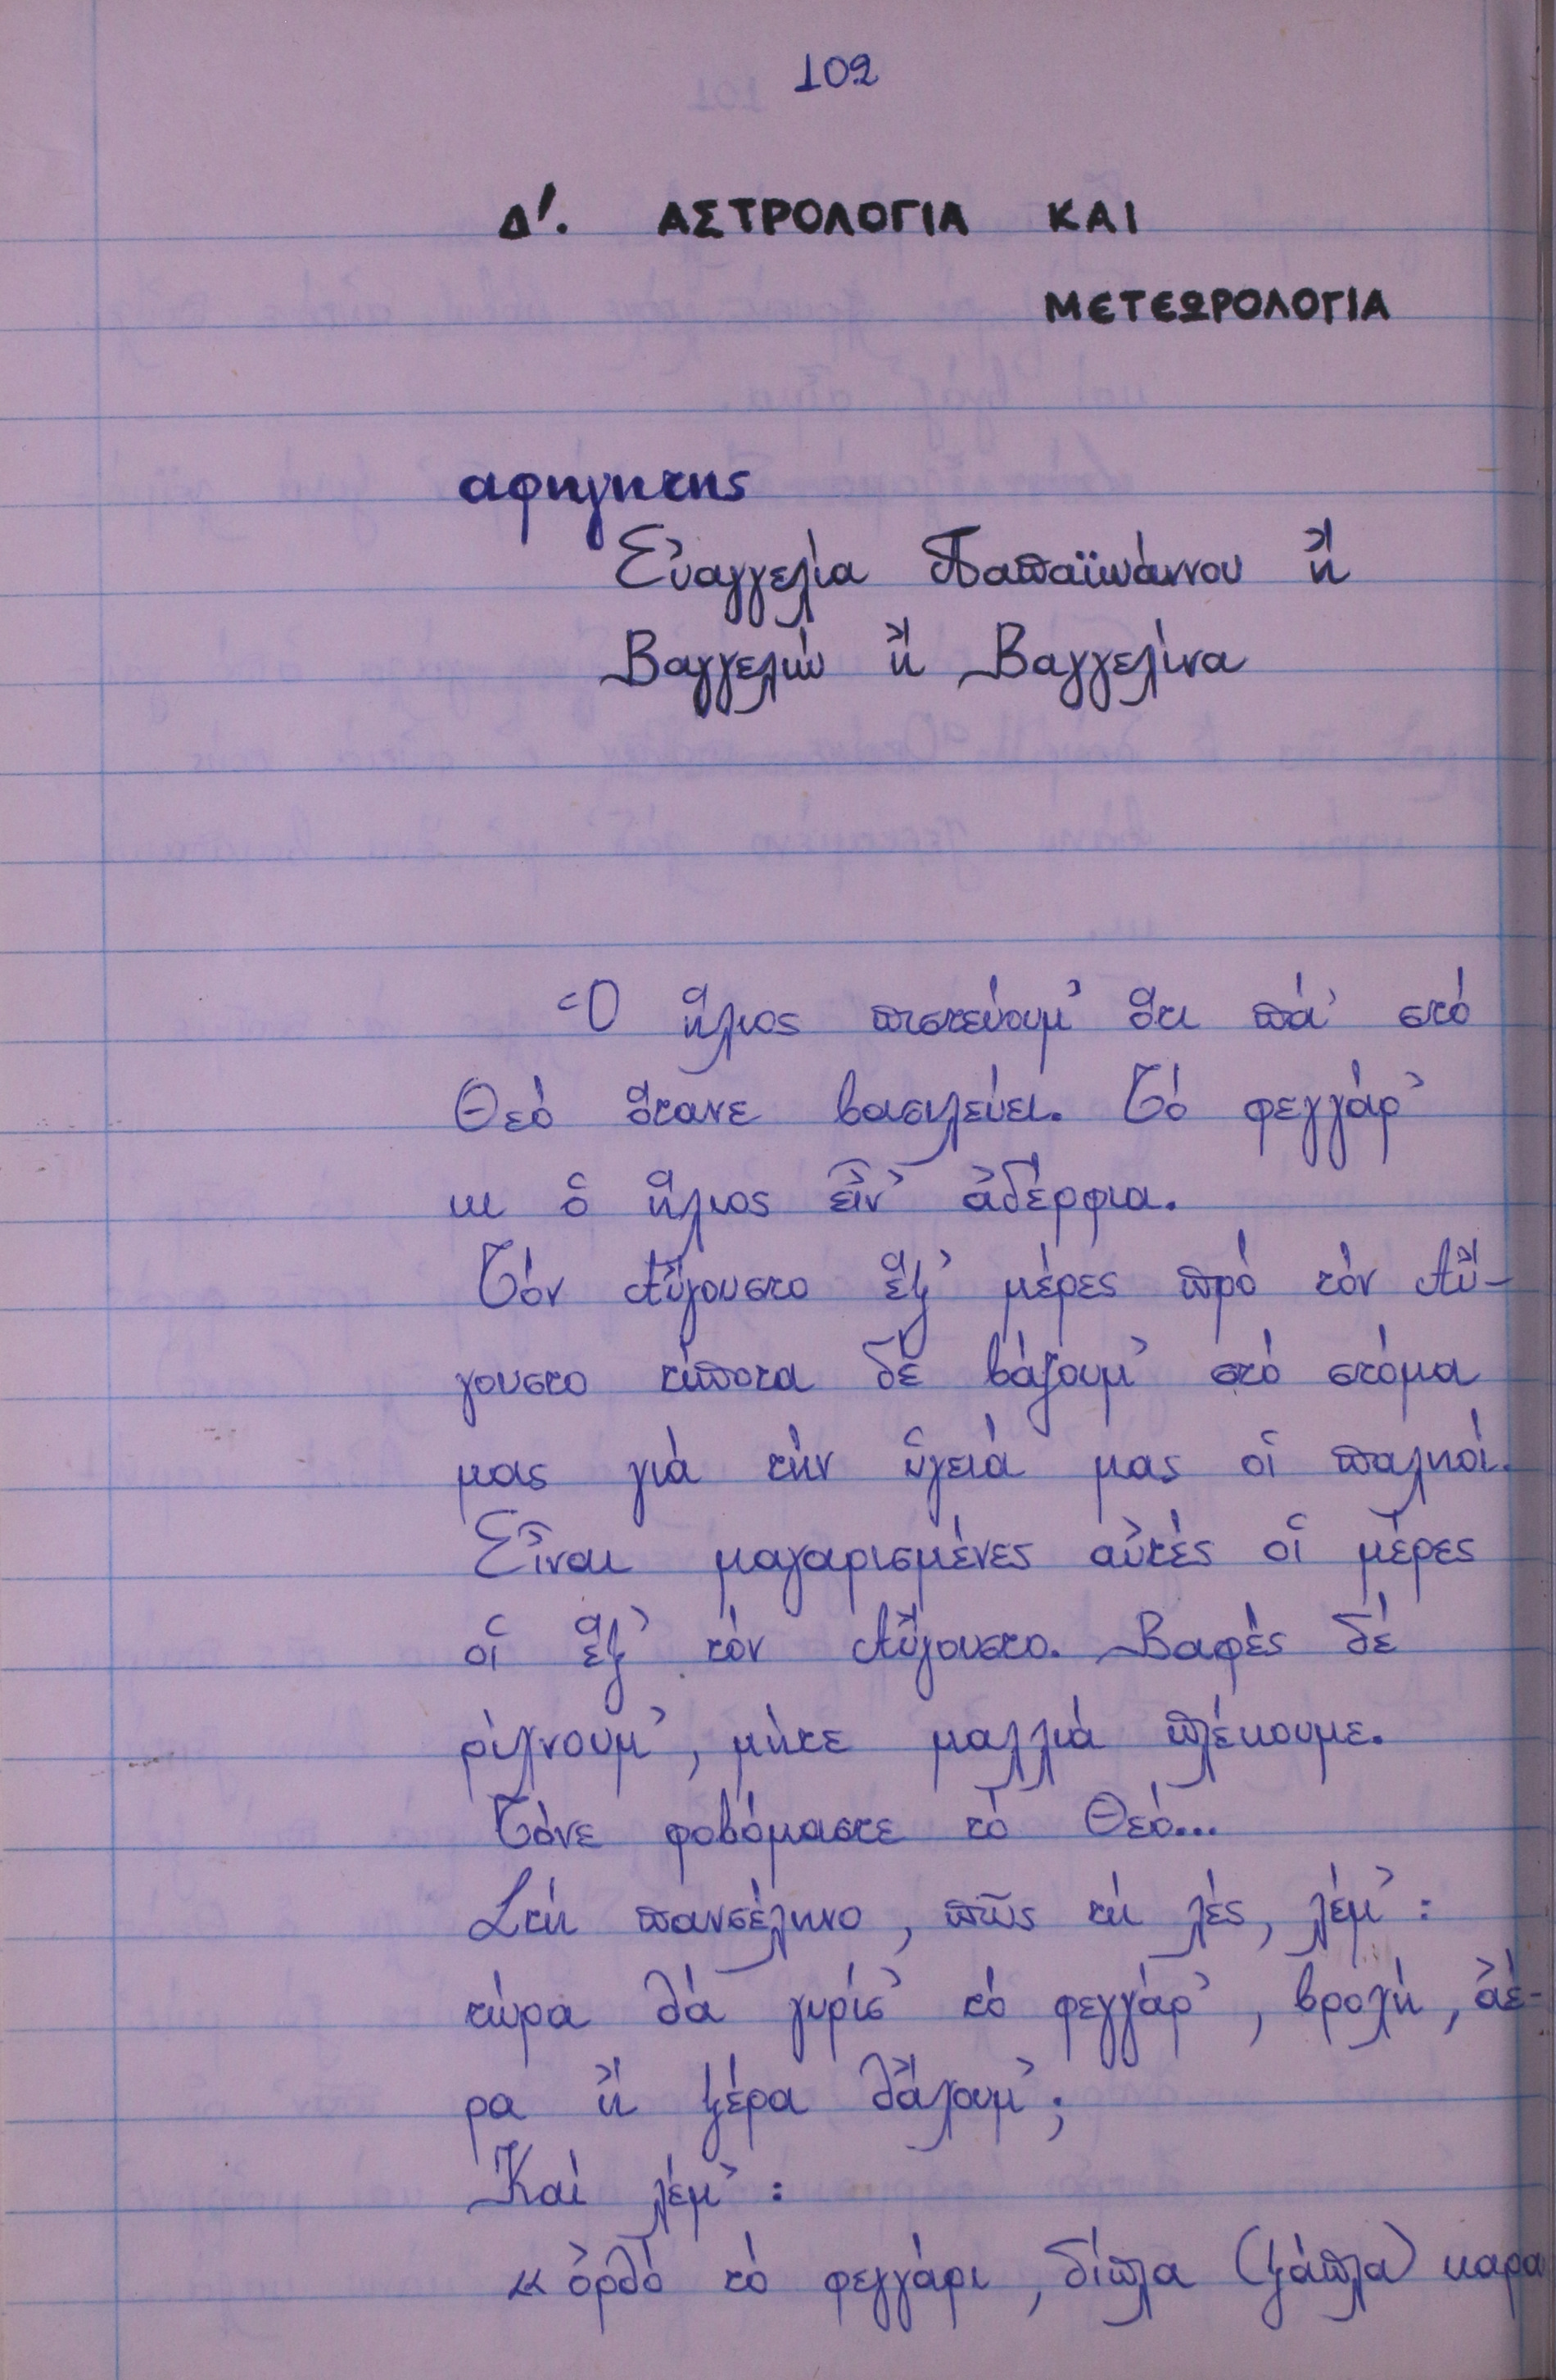 102
Δ'. ΑΣΤΡΟΛΟΓΙΑ ΚΑΙ
ΜΕΤΕΩΡΟΛΟΓΙΑ
αφηγητης
Εὐαγγελία Παπαϊωάννου ἤ
Βαγγελιώ ἤ Βαγγελίνα
Ὁ ἥλιος πιστεύουμ' ὅτι πά' στό
Θεό ὅτανε βασιλεύει. Τό φεγγάρ'
κι ὁ ἥλιος εἶν' ἀδέρφια.
Τόν Αὔγουστο ἕξ' μέρες πρό τόν Αὔ-
γουστο τίποτα δέ βάζουμ' στό στόμα
μας γιά τήν ὑγειά μας οἱ παληοί.
Εἶναι μαγαρισμένες αὐτές οἱ μέρες
οἱ ἕξ' τόν Αὔγουστο. Βαφές δέ
ρίχνουμ', μήτε μαλλιά πλέκουμε.
Τόνε φοβόμαστε τό Θεό...
Στή πανσέληνο, πῶς τή λές, λέμ' :
τώρα θά γυρίσ' τό φεγγάρ', βροχή, ἀέ-
ρα ἤ ξέρα θἄχουμ';
Καί λέμ' :
« ὀρθό τό φεγγάρι, δίπλα (ξάπλα) καρα